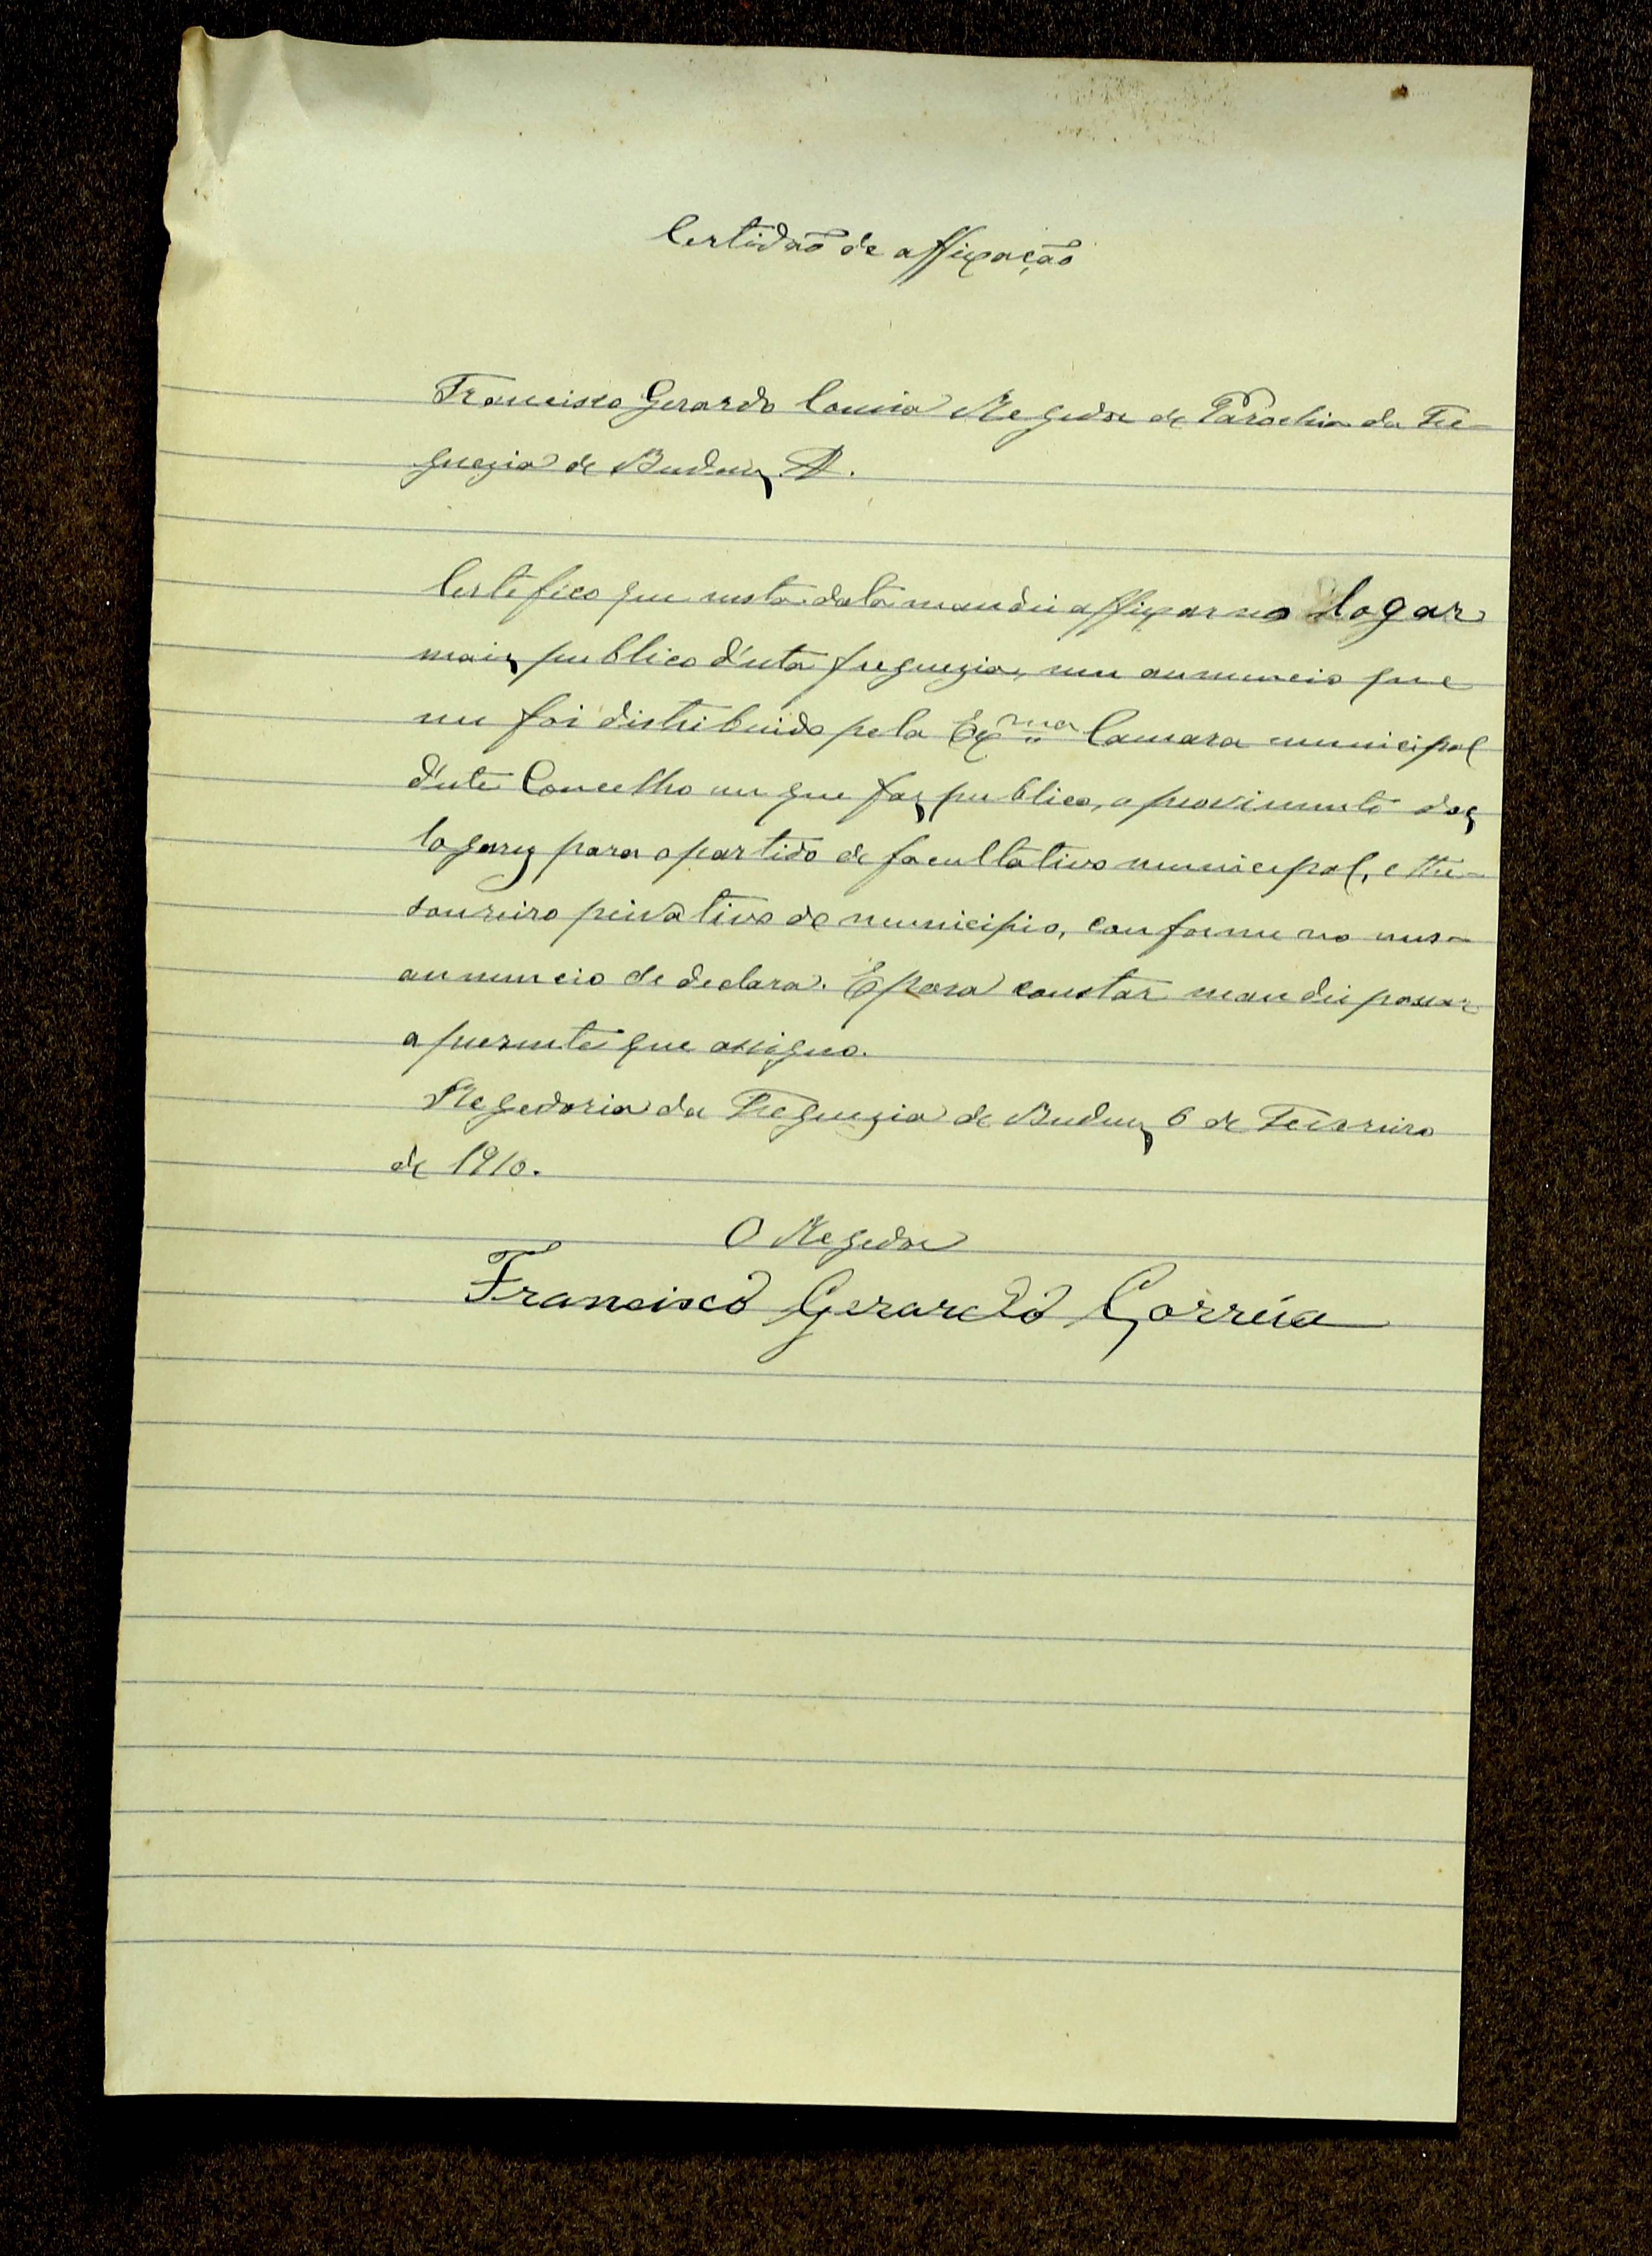 Certidão de affixação
Francisco Gerardo Corrêia Regedor de Parochia da Fre-
guezia de Budens &.
Certefico que nesta data mandei affixar no logar
mais publico d'esta freguezia, um annuncio que
me foi distribuido pela Exma Camara municipal
d'este Concelho em que faz publico, o provimento dos
logares para o partido de facultativo municipal, e the-
soureiro privativo do municipio, conforme no mes-
annuncio se declara. E para constar mandei passar
a presente que assigno.
Regedoria da Freguezia de Budens 6 de Fevereiro
de 1910.
O Regedor
Francisco Gerardo Corrêia